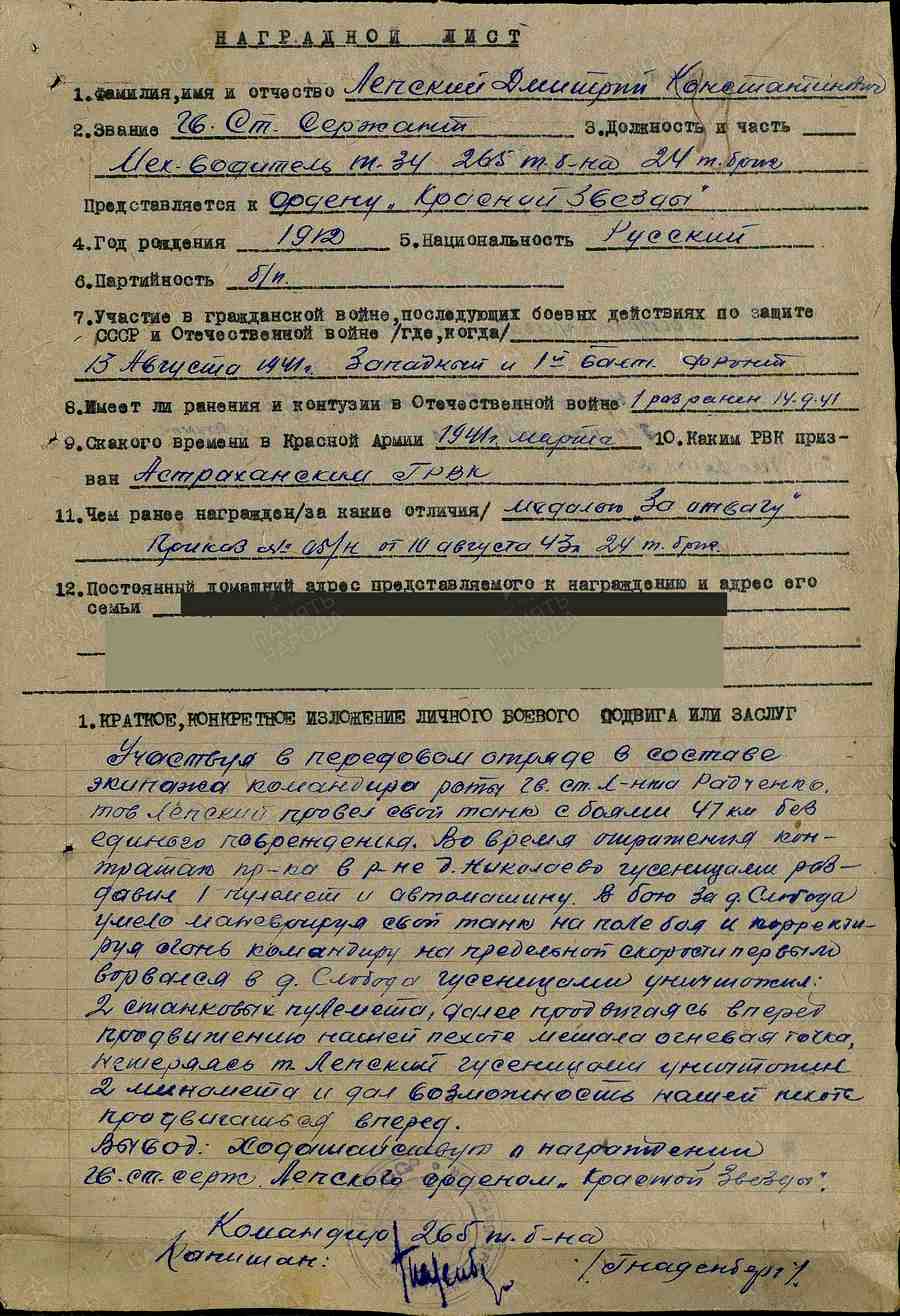 НАГРАДНОЙ ЛИСТ
1.Фамилия,имя и отчество Лепский Дмитрий Константинович
2.Звание Гв. Ст. Сержант 3.Должность и часть
Мех-водитель т. 34 265 т. б-на 24 т. бриг
Представляется к ордену „Красной Звезды"
4.Год рождения 1912 5.Национальность Русский
6.Партийность б/п.
7.Участие в гражданской войне,последующих боевых действиях по защите
СССР и Отечественной войне /где,когда/
13 Августа 1941г. Западный и 1й балт. фронт
8.Имеет ли ранения и контузии в Отечественной войне 1 раз ранен 14.9.41
9.Скакого времени в Красной Армии 1941г. марта 10.Каким РВК приз-
ван Астраханским ГРВК
11.Чем ранее награжден/за какие отличия/ медалью „За отвагу"
Приказ № 05/н от 10 августа 43г. 24 т. бриг.
12.Постоянный домашний адрес представляемого к награждению и адрес его
семьи
1.КРАТКОЕ,КОНКРЕТНОЕ ИЗЛОЖЕНИЕ ЛИЧНОГО БОЕВОГО ПОДВИГА ИЛИ ЗАСЛУГ
Участвуя в передовом отряде в составе
экипажа командира роты Гв. ст. Л-нта Радченко,
тов Лепский провел свой танк с боями 47 км без
единого повреждения. Во время отражения кон-
тратак пр-ка в р-не д. Николаево гусеницами раз-
давил 1 пулемет и автомашину. В бою за д. Слобода
умело маневрируя свой танк на поле боя и корректи-
руя огонь командиру на предельной скорости первым
ворвался в д. Слобода гусеницами уничтожил:
2 станковых пулемета, далее продвигаясь вперед
продвижению нашей пехоте мешала огневая точка,
нетеряясь т. Лепский гусеницами уничтожил
2 миномета и дал возможность нашей пехоте
продвигаться вперед.
Вывод: Ходатайствую о награждении
Гв. ст. серж. Лепского орденом „Красной Звезды".
Командир 265 т. б-на
Капитан: /Гнаденберг/.
ПАМЯТЬ
НАРОДА